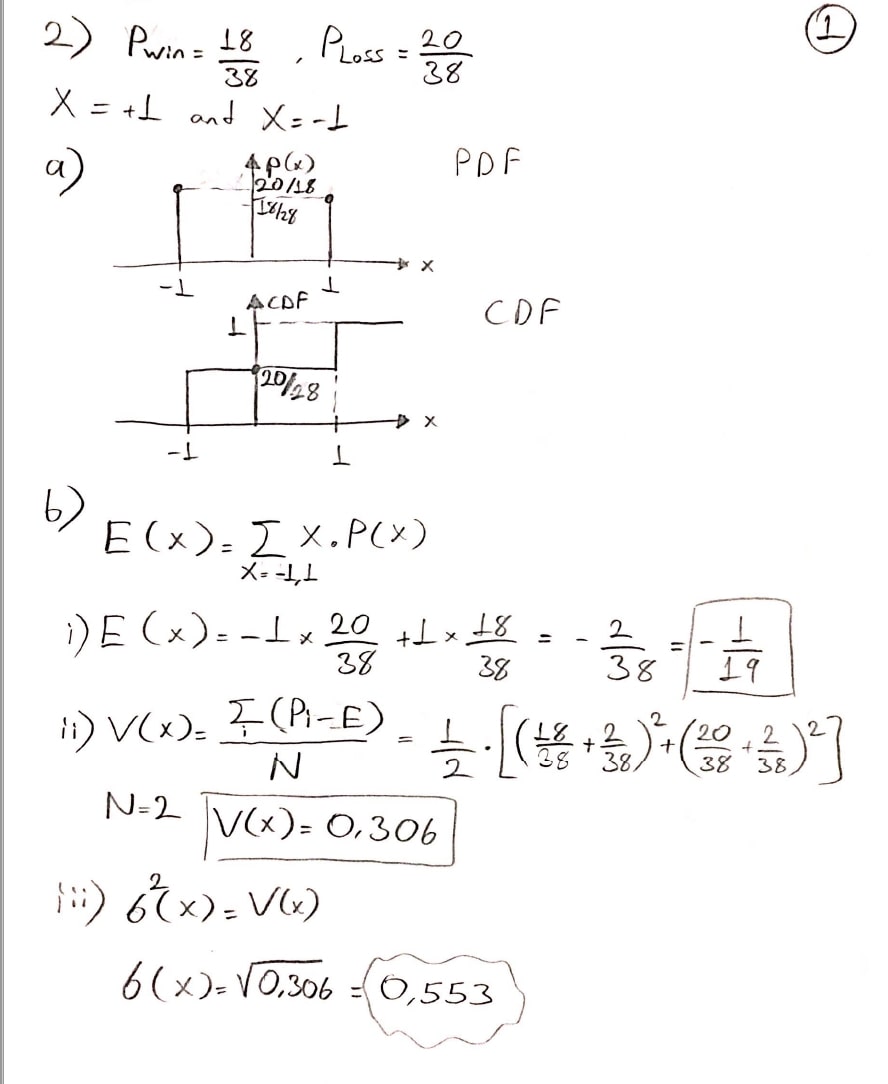 2) Pwin = 18/38 , PLoss = 20/38
1
X = +1 and X = -1
a) P(x) PDF
20/18
18/28
-1 1 x
CDF CDF
1
20/28
-1 1 x
b)
E(x) = Σ X.P(X)
X = -1,1
i) E(x) = -1 x 20/38 + 1 x 18/38 = - 2/38 = - 1/19
ii) V(x) = Σi (Pi - E) / N = 1/2 . [(18/38 + 2/38)² + (20/38 + 2/38)²]
N=2 V(x) = 0,306
iii) 6²(x) = V(x)
6(x) = √0,306 = 0,553